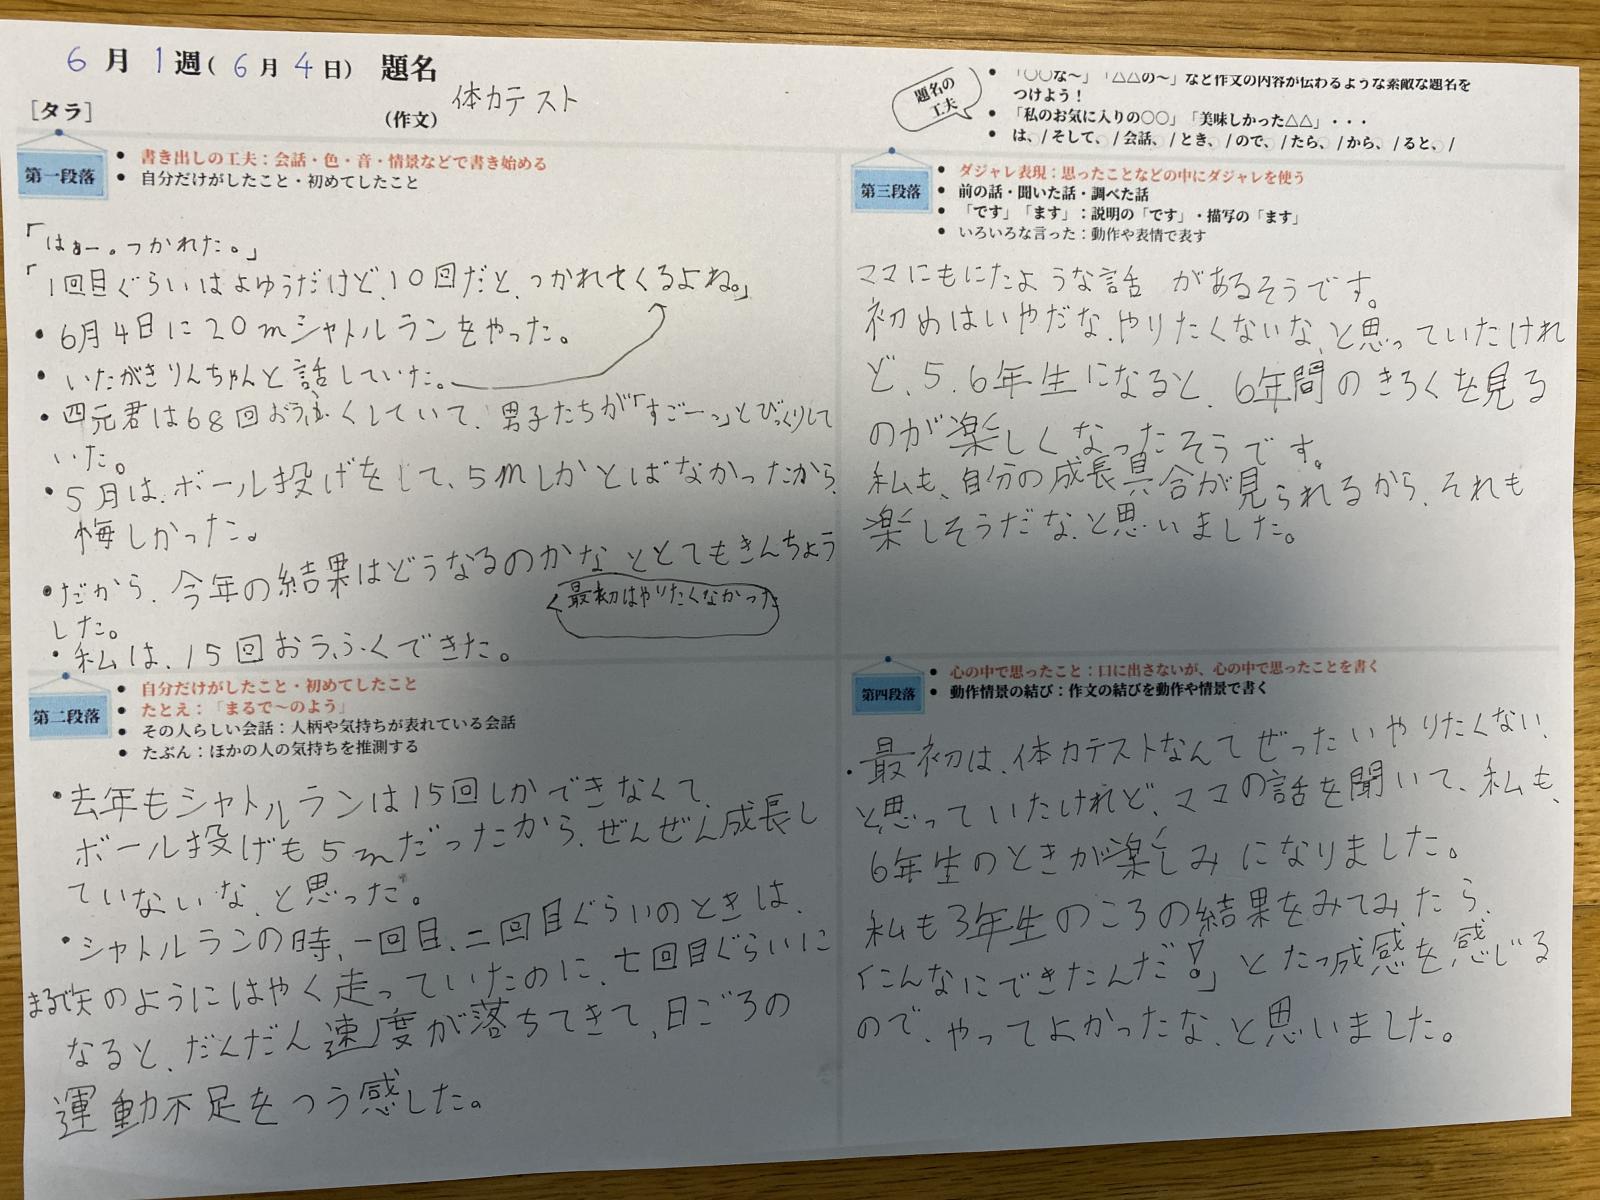 6月1週(6月4日) 題名
[タラ]
(作文)
体力テスト
題名の
工夫
• 「○○な〜」「△△の〜」など作文の内容が伝わるような素敵な題名を
つけよう！
• 「私のお気に入りの○○」「美味しかった△△」・・・
• は、/ そして、/ 会話、/ とき、/ ので、/ たら、/ から、/ ると、/
第一段落
• 書き出しの工夫：会話・色・音・情景などで書き始める
• 自分だけがしたこと・初めてしたこと
「はぁー。つかれた。」
「1回目ぐらいはよゆうだけど、10回だと、つかれてくるよね。」
• 6月4日に20mシャトルランをやった。
• いたがきりんちゃんと話していた。
• 四元君は68回おうふくしていて、男子たちが「すごーっ」とびっくりして
いた。
• 5月は、ボール投げをして、5mしかとばなかったから、
悔しかった。
• だから、今年の結果はどうなるのかな ととてもきんちょう
した。
最初はやりたくなかった
• 私は、15回おうふくできた。
第二段落
• 自分だけがしたこと・初めてしたこと
• たとえ：「まるで〜のよう」
• その人らしい会話：人柄や気持ちが表れている会話
• たぶん：ほかの人の気持ちを推測する
• 去年もシャトルランは15回しかできなくて、
ボール投げも5mだったから、ぜんぜん成長し
ていないな、と思った。
• シャトルランの時、一回目、二回目ぐらいのときは、
まるで矢のようにはやく走っていたのに、七回目ぐらいに
なると、だんだん速度が落ちてきて、日ごろの
運動不足をつう感した。
第三段落
• ダジャレ表現：思ったことなどの中にダジャレを使う
• 前の話・聞いた話・調べた話
• 「です」「ます」：説明の「です」・描写の「ます」
• いろいろな言った：動作や表情で表す
ママにもにたような話 があるそうです。
初めはいやだな、やりたくないな、と思っていたけれ
ど、5、6年生になると、6年間のきろくを見る
のが楽しくなったそうです。
私も、自分の成長具合が見られるから、それも
楽しそうだな、と思いました。
第四段落
• 心の中で思ったこと：口に出さないが、心の中で思ったことを書く
• 動作情景の結び：作文の結びを動作や情景で書く
• 最初は、体力テストなんてぜったいやりたくない、
と思っていたけれど、ママの話を聞いて、私も、
6年生のときが楽しみになりました。
私も3年生のころの結果をみてみたら、
「こんなにできたんだ！」とたっ成感を感じる
ので、やってよかったな、と思いました。